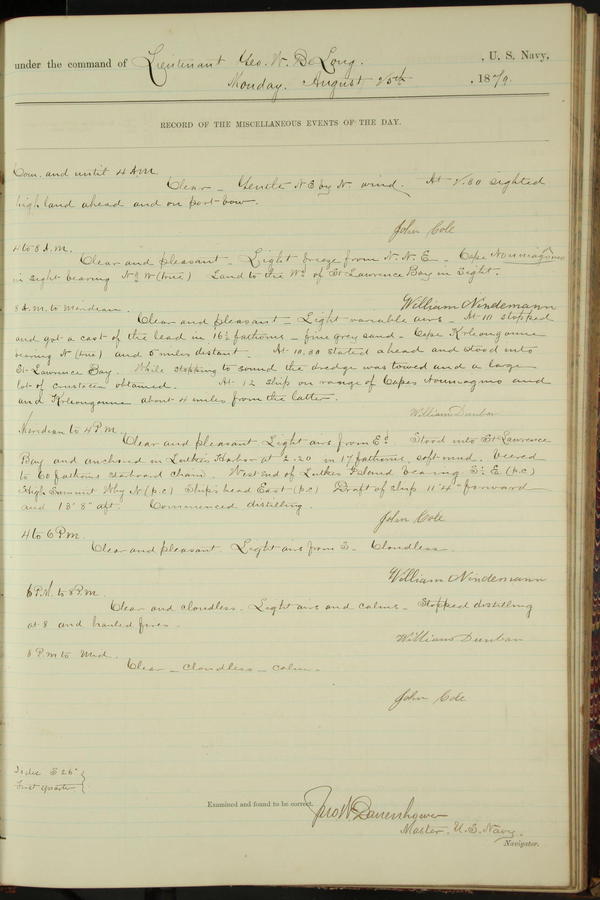 under the command of Lieutenant Geo. W. De Long. , U. S. Navy,
Monday. August 25th , 1879.
RECORD OF THE MISCELLANEOUS EVENTS OF THE DAY.
Com. and until 4 A.M.
Clear – Gentle N E by N wind. At 2.30 sighted
high land ahead and on port bow.
John Cole
4 to 8 A.M.
Clear and pleasant – Light breeze from N.N.E – Cape
in sight bearing (true) Land to the Wd of St Lawrence Bay in sight.
William Nindemann
8 A.M. to Meridian.
Clear and pleasant – Light variable airs – At 10 stopped
and got a cast of the lead in 16½ fathoms – fine grey sand – Cape
bearing N (true) and 5 miles distant. At 10.30 started ahead and stood into
St Lawrence Bay. While stopping to sound the dredge was towed and a large
lot of obtained. At 12 ship on range of Capes and
and about 4 miles from the latter.
William Dunbar
Meridian to 4 P.M.
Clear and pleasant Light airs from Ed. Stood into St Lawrence
Bay and anchored in Lutke's Harbor at 2.20 in 17 fathoms, soft mud. Veered
to 60 fathoms starboard chain. West end of Lutke Island bearing (p.c)
High Summit N by (p.c) Ship's head East (p.c) Draft of ship 11' 4" forward
and 13' 8" aft. Commenced distilling.
John Cole
4 to 6 P.M.
Clear and pleasant. Light airs from Cloudless
William Nindemann
6 P.M. to 8 P.M.
Clear and cloudless. Light airs and calms – Stopped distilling
at 8 and hauled fires.
William Dunbar
8 P.M to Mid.
Clear – cloudless – calm.
John Cole
First quarter
Examined and found to be correct. Jno W Danenhower
Master, U.S. Navy.
Navigator.